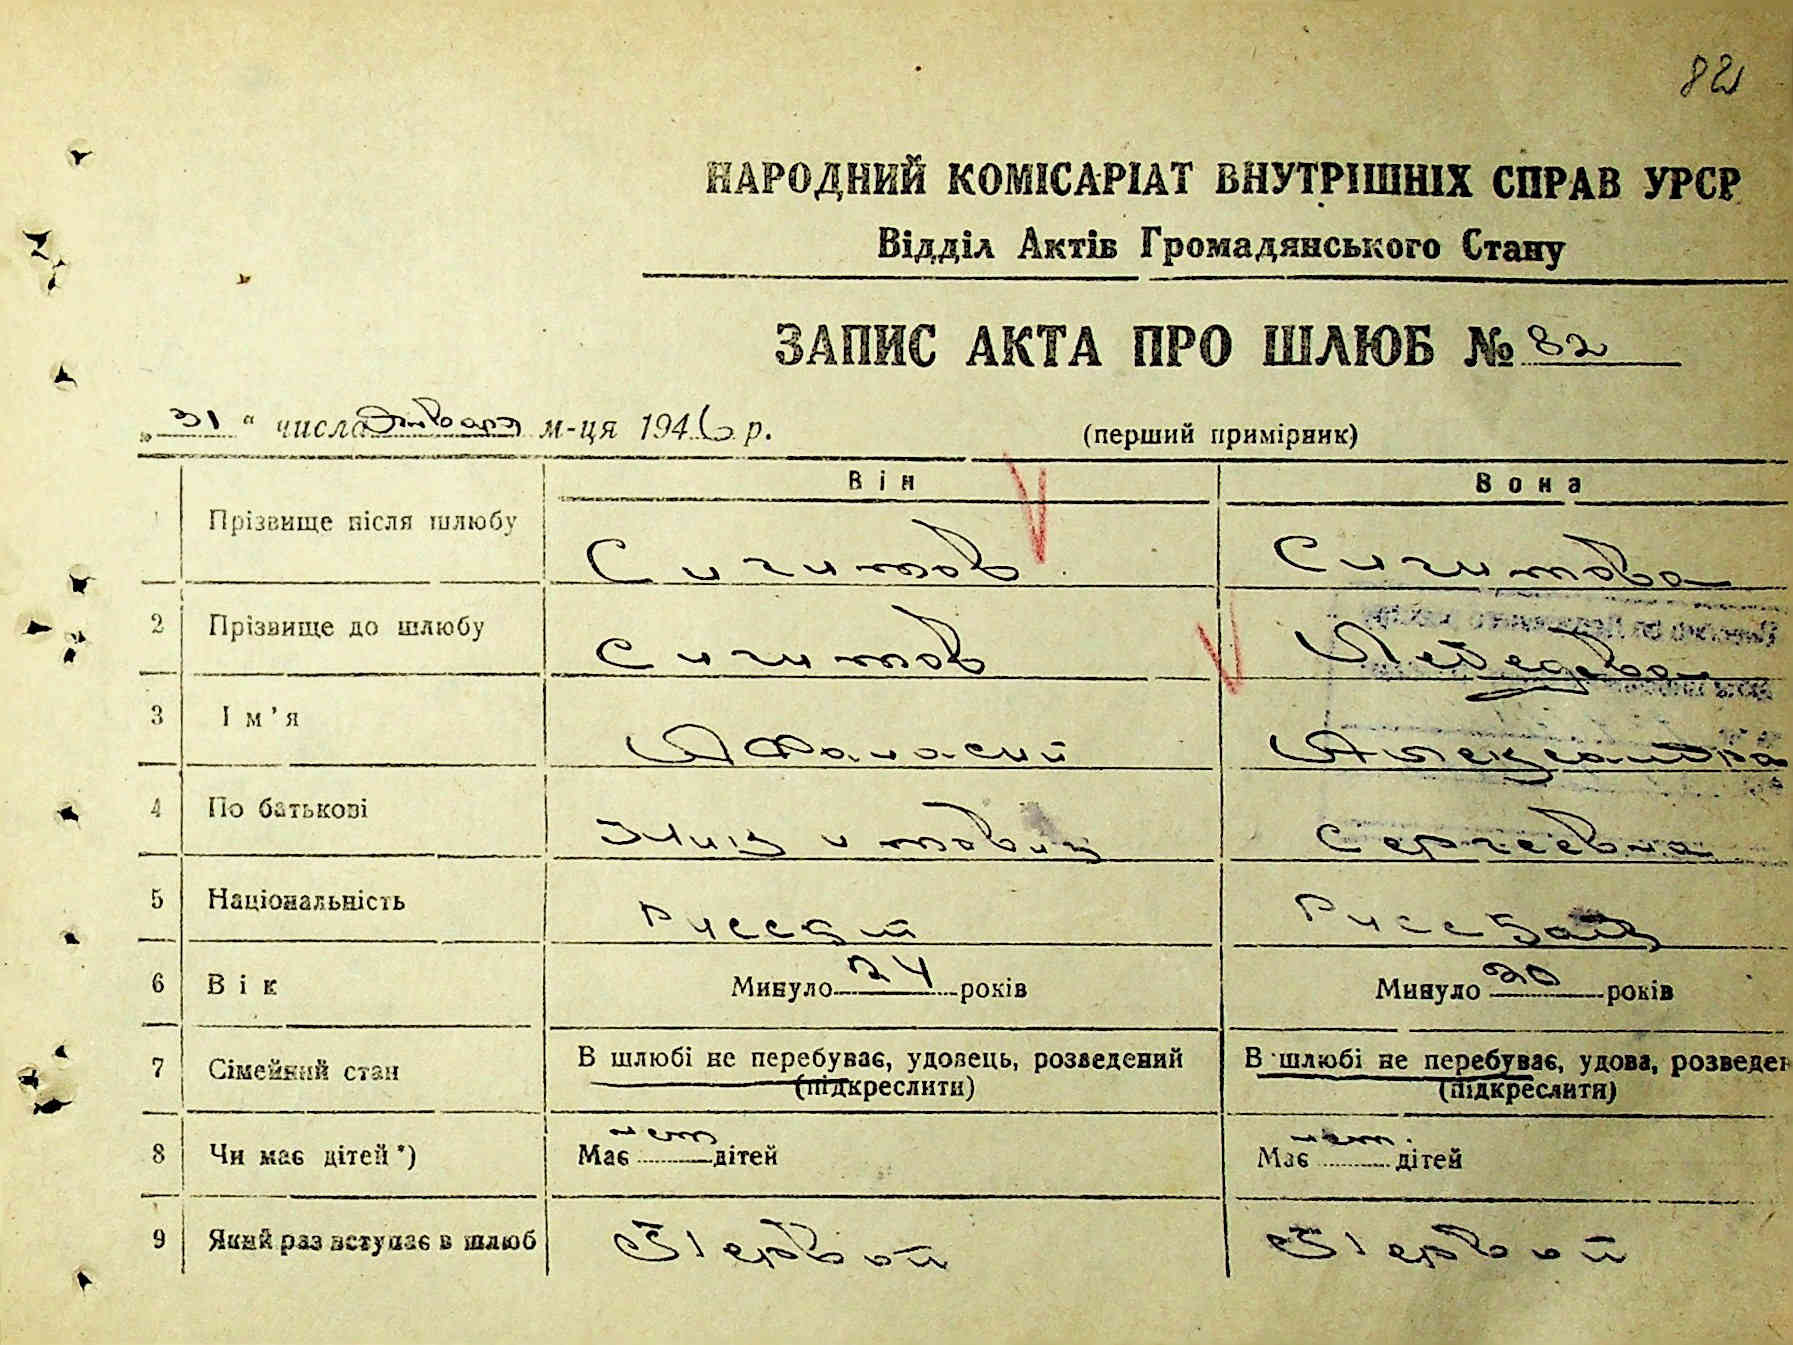 82
НАРОДНИЙ КОМІСАРІАТ ВНУТРІШНІХ СПРАВ УРСР
Відділ Актів Громадянського Стану
ЗАПИС АКТА ПРО ШЛЮБ № 82
„31“ числа Января м-ця 1946 р. (перший примірник)
Він Вона
1 Прізвище після шлюбу Сигитов Сигитова
2 Прізвище до шлюбу Сигитов Лебедева
3 Ім'я Афанасий Александра
4 По батькові Сергеевна
5 Національність Русский Русская
6 Вік Минуло 24 років Минуло 20 років
7 Сімейний стан В шлюбі не перебуває, удовець, розведений В шлюбі не перебуває, удова, розведен
(підкреслити) (підкреслити)
8 Чи має дітей*) Має нет дітей Має нет дітей
9 Який раз вступає в шлюб Первый Первый